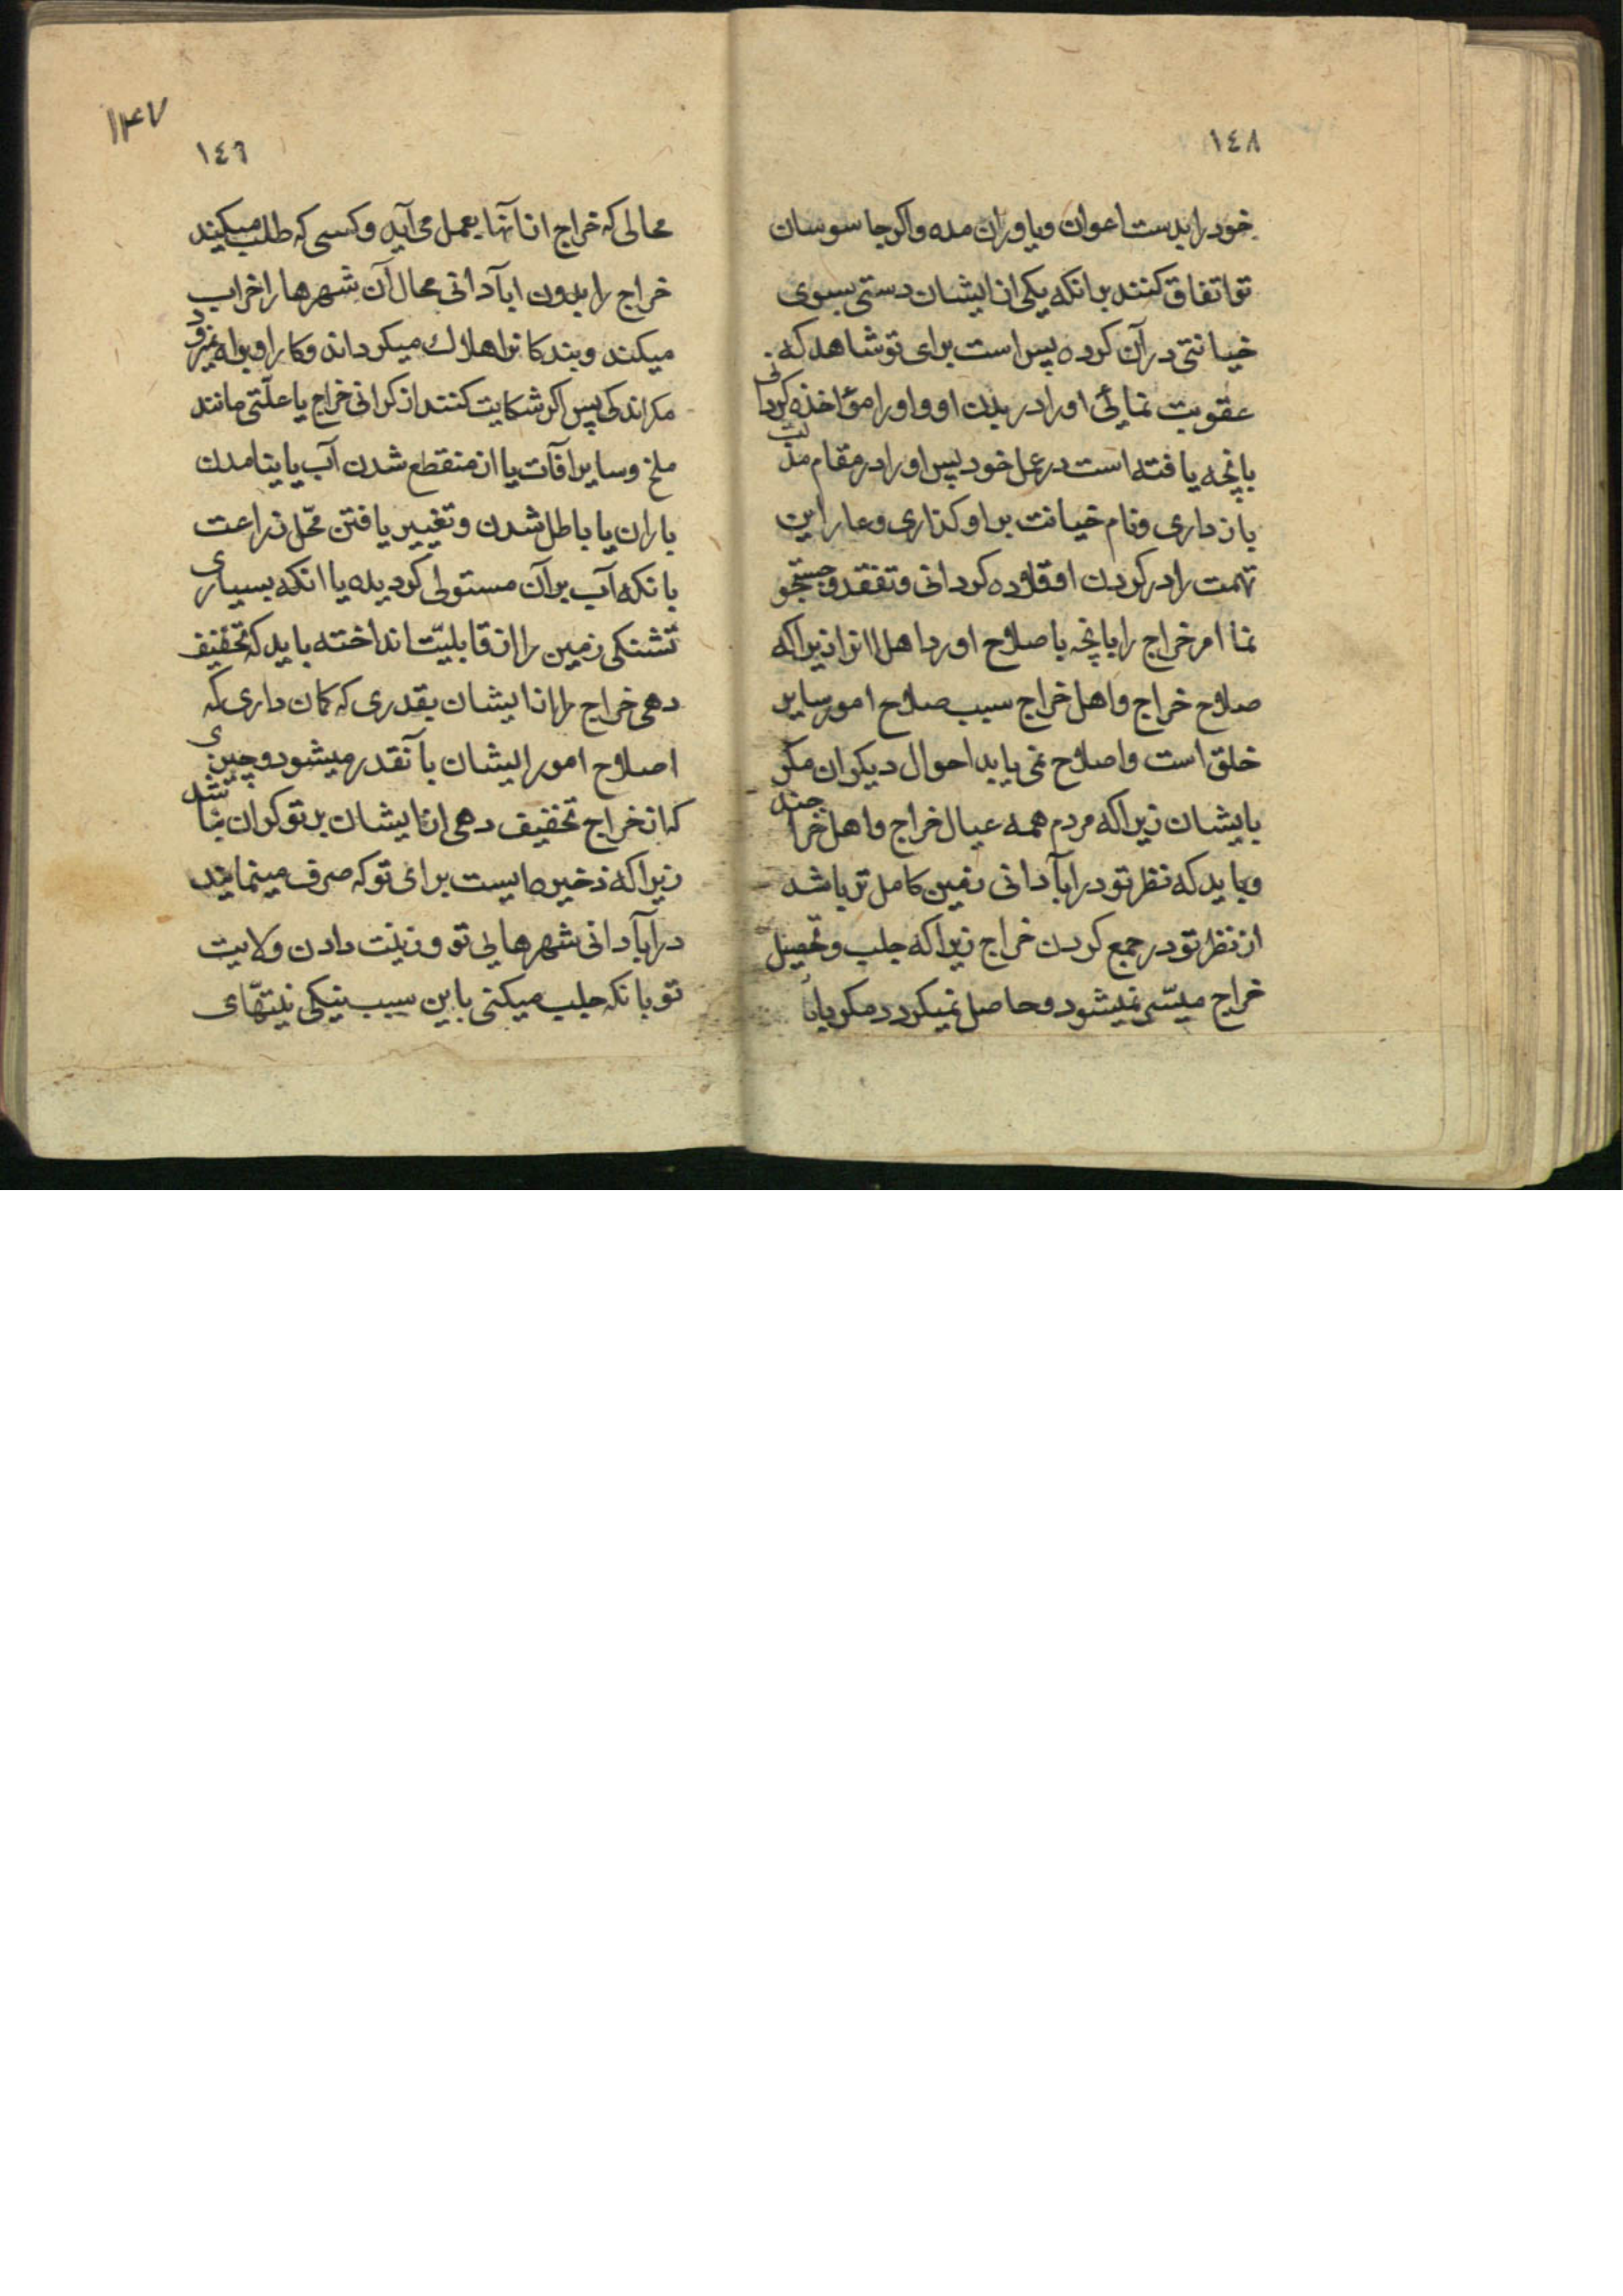 ١٤٨
خود را بدست اعوان و یاوران مده و اکر جاسوسان
تو اتفاق کنند برانکه یکی از ایشان دستی بسوی
خیانتی در آن کرده پس است برای تو شاهد که
عقوبت نمائی او را در بدن او و او را مؤاخذه کردانی
بانچه یافته است در عمل خود پس او را در مقام مذلت
بازداری و نام خیانت بر او کذاری و عار این
تهمت را در کردن او قلاده کردانی و تفقد و جستجو
نما امر خراج را بانچه باصلاح اورد اهل انرا زیراکه
صلاح خراج و اهل خراج سبب صلاح امور سایر
خلق است و اصلاح نمی یابد احوال دیکران مکر
بایشان زیراکه مردم همه عیال خراج و اهل خراجند
و باید که نظر تو در ابآدانی زمین کامل تر باشد
از نظر تو در جمع کردن خراج زیراکه جلب و تحصیل
خراج میسّر نمیشود و حاصل نمیکردد مکر بابآ
١٤٧
١٤٦
محالی که خراج از آنها بعمل می آید و کسی که طلب میکند
خراج را بدون ابآدانی محال آن شهرها را خراب
میکند و بندکانرا هلاک میکرداند و کار او براه نمیرود
مکر اندکی پس اکر شکایت کنند از کرانی خراج یا علّتی مانند
ملخ و سایر افآت یا از منقطع شدن آب یا نیامدن
باران یا باطل شدن و تغییر یافتن محّل زراعت
بانکه آب بر آن مستولی کردیده یا انکه بسیاری
تشنکی زمین را از قابلیّت انداخته باید که تخفیف
دهی خراج را از ایشان بقدری که کمان داری که
اصلاح امور ایشان بآنقدر میشود و چیزی
که از خراج تخفیف دهی از ایشان بر تو کران نباشد
زیراکه ذخیره ایست برای تو که صرف مینمایند
در ابآدانی شهرهای تو و زینت دادن ولایت
تو بانکه جلب میکنی باین سبب نیکی نیتهّای